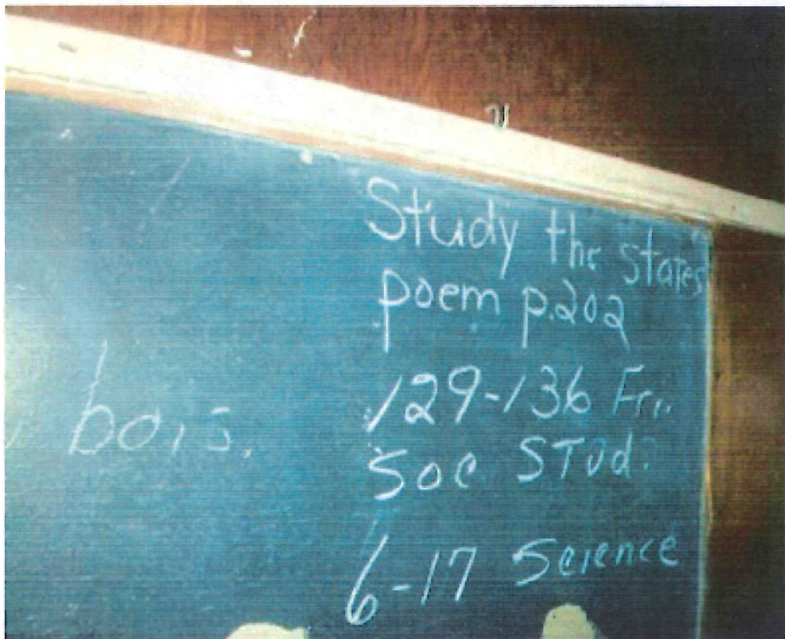 bois.
Study the states
poem p.202
129-136 Fri.
Soc Stud.
6-17 Science